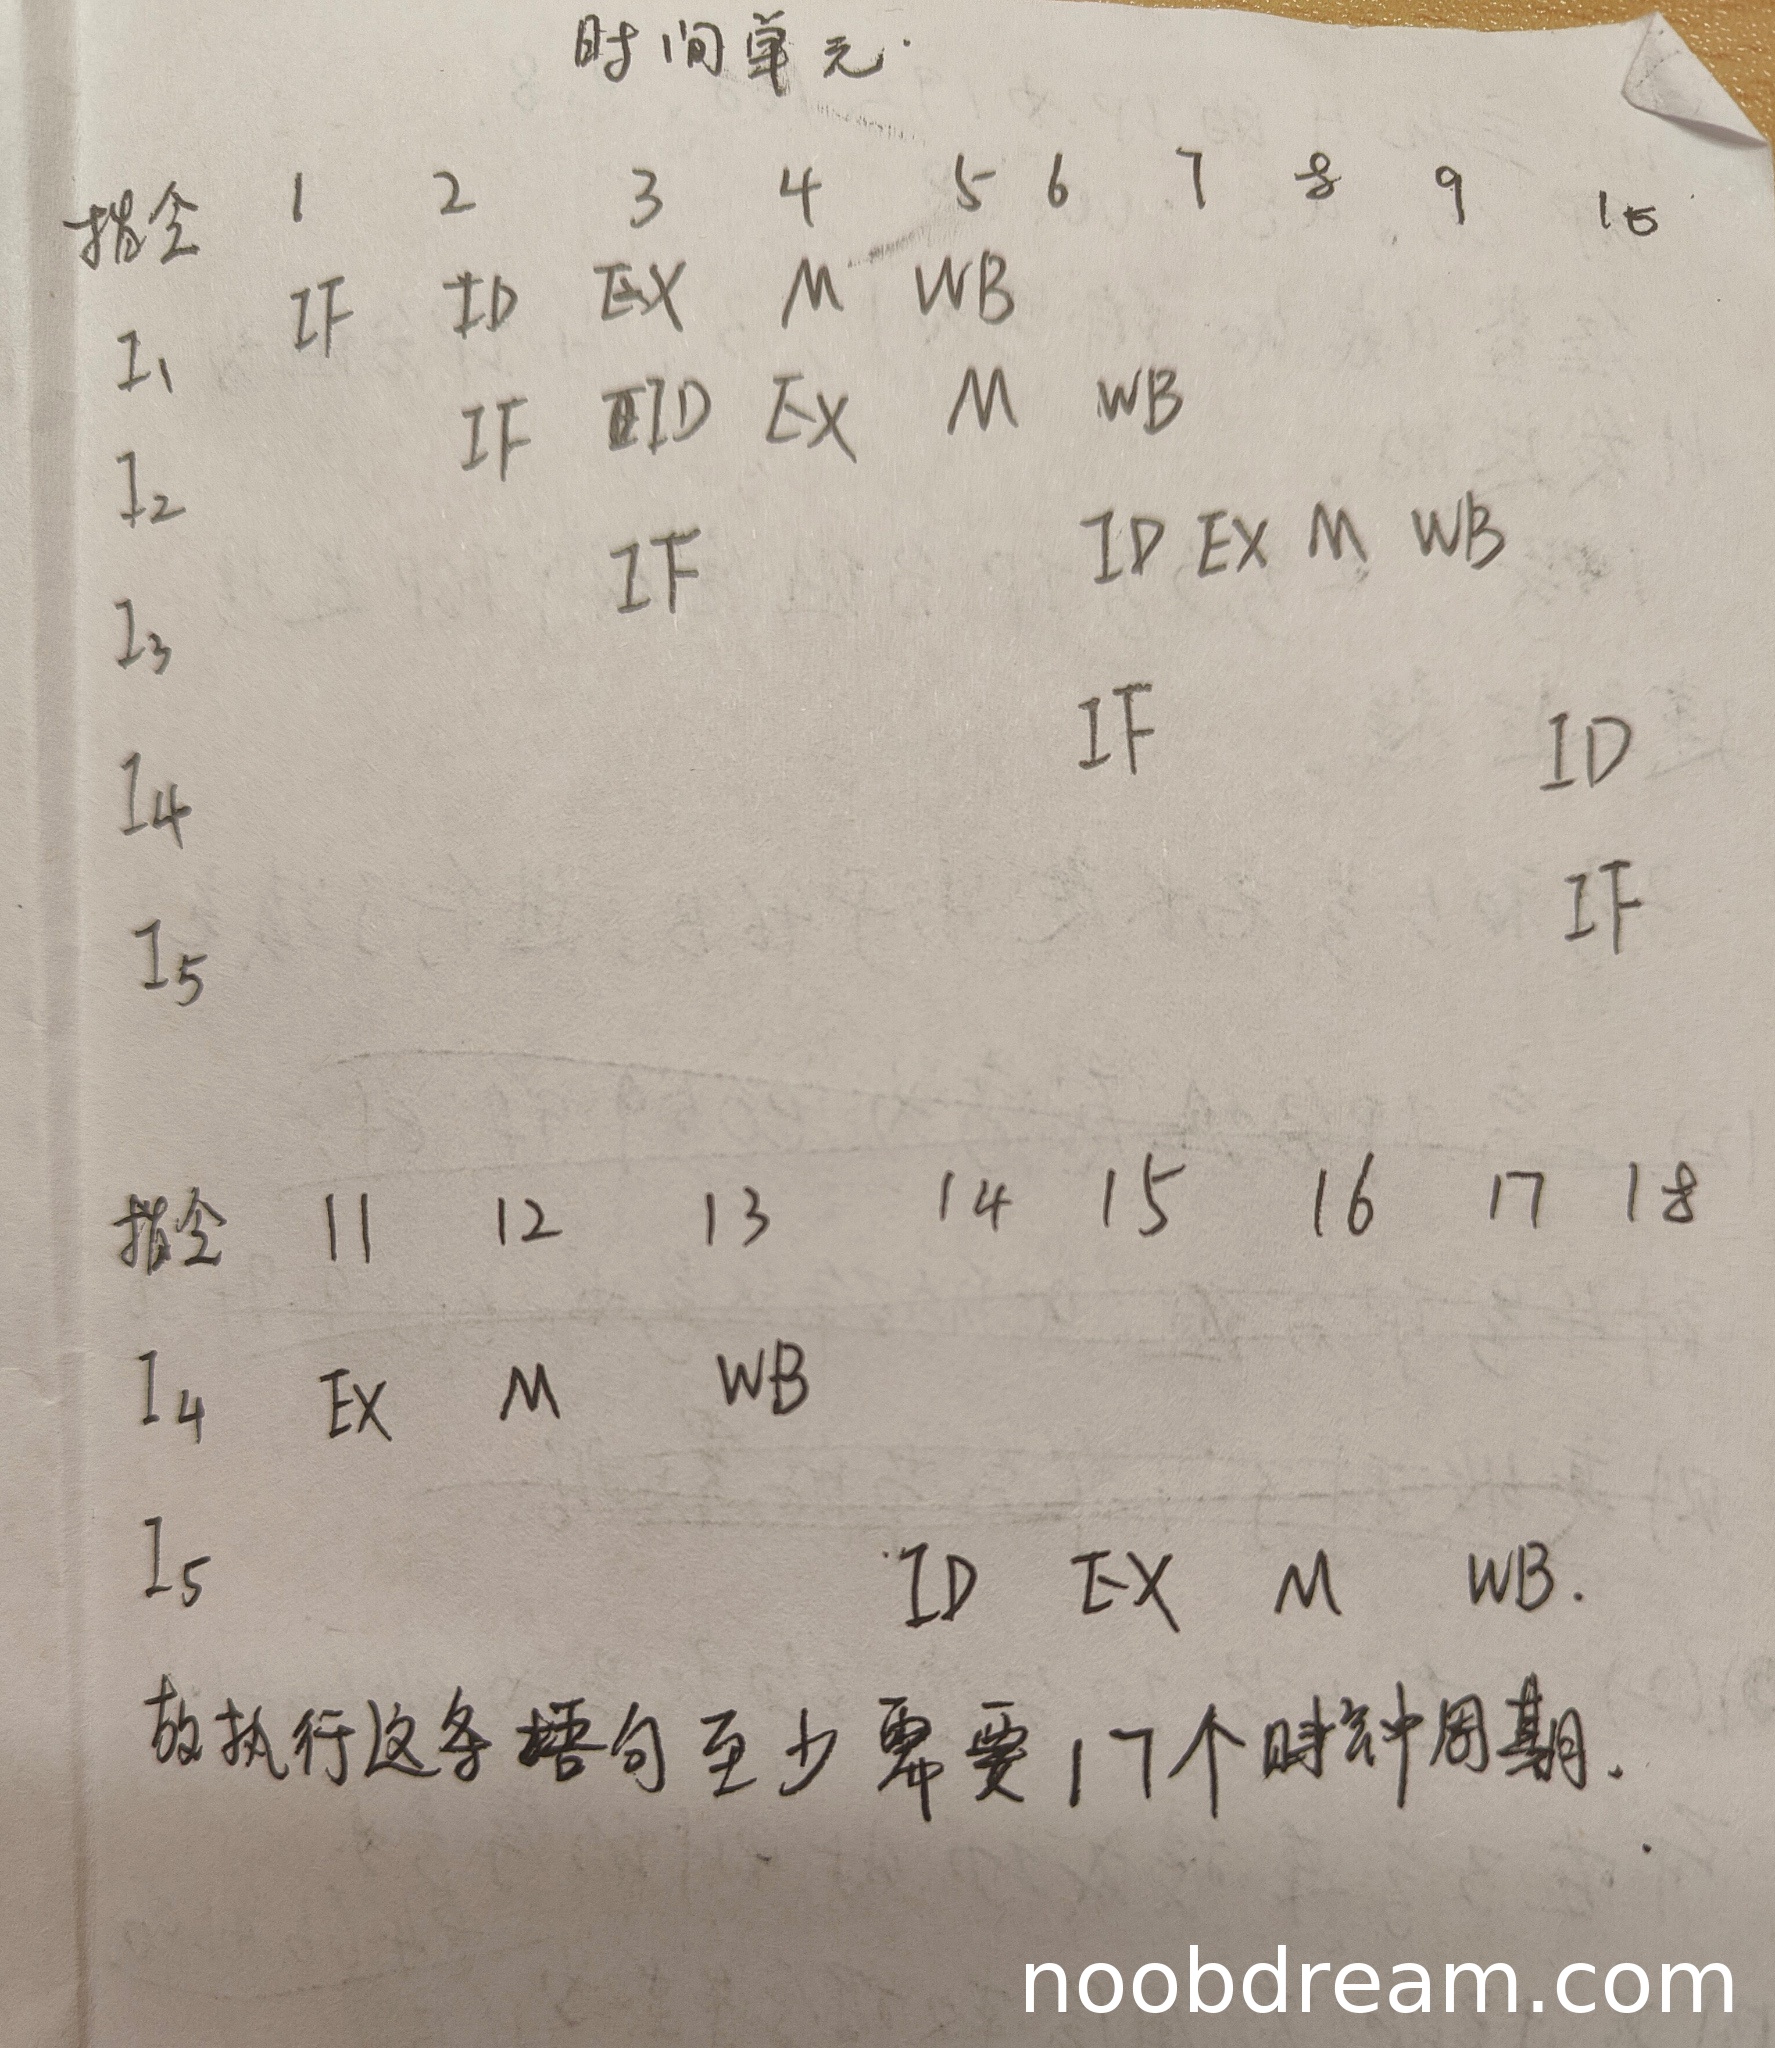 时间单元.
指令 1 2 3 4 5 6 7 8 9 10
I1 IF ID EX M WB
I2 IF ID EX M WB
I3 IF ID EX M WB
I4 IF ID
I5 IF
指令 11 12 13 14 15 16 17 18
I4 EX M WB
I5 ID EX M WB.
故执行这条语句至少需要17个时钟周期.
noobdream.com